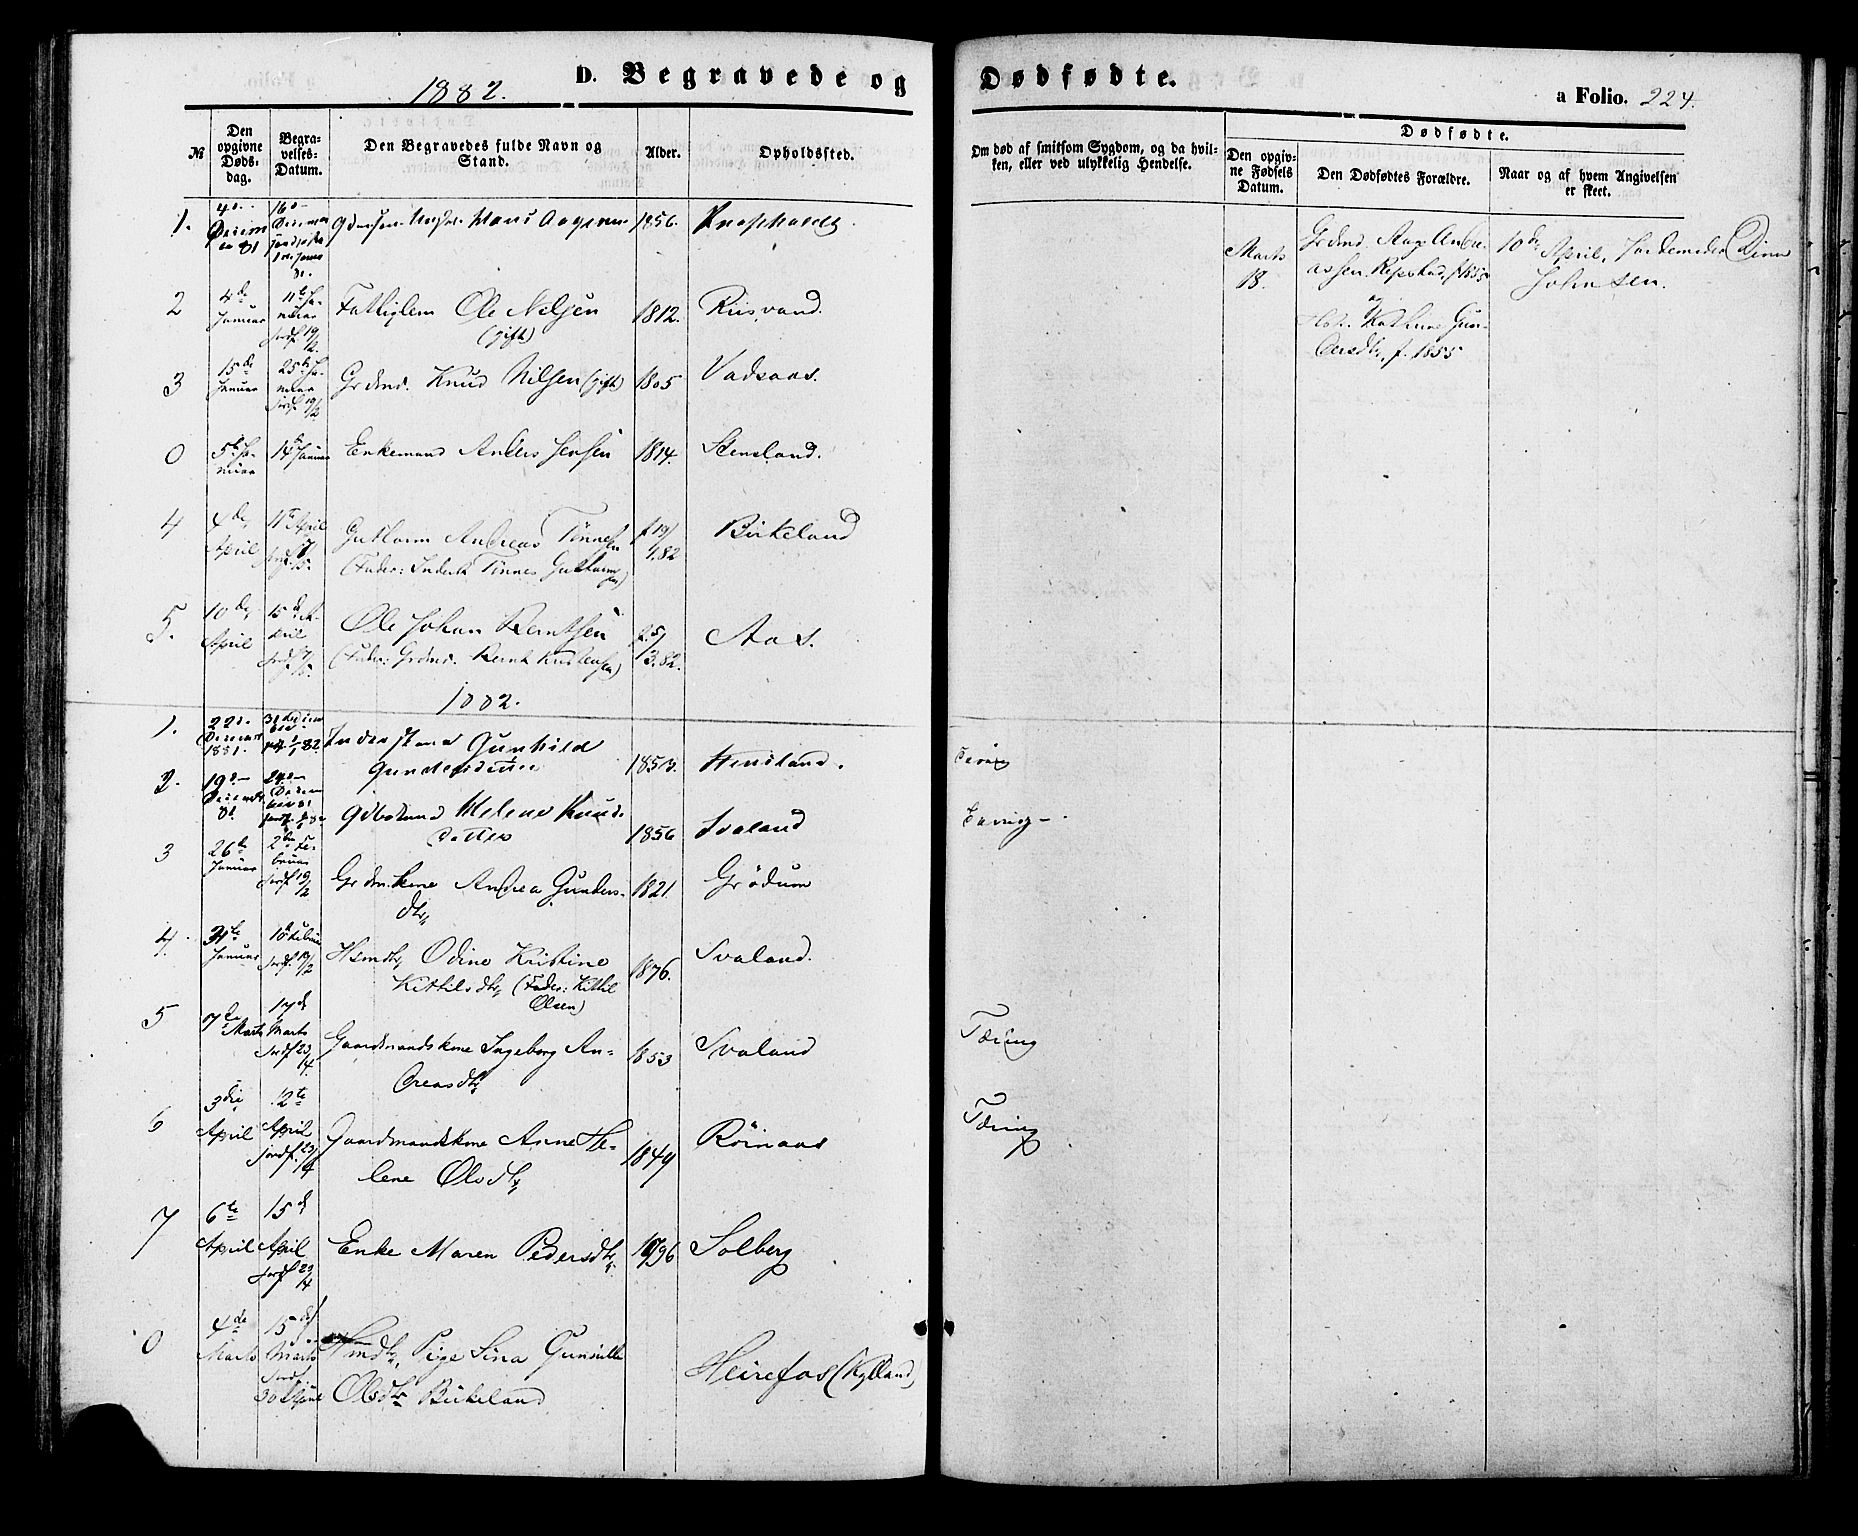 1882.
D. Begravede og
Dødfødte.
a Folio. 224.
№
Den opgivne Døds-dag.
Begra-velses-Datum.
Den Begravedes fulde Navn og Stand.
Alder.
Opholdssted.
Om død af smitsom Sygdom, og da hvil-
ken, eller ved ulykkelig Hendelse.
Dødfødte.
Den opgiv-ne Fødsels Datum.
Den Dødfødtes Forældre.
Naar og af hvem Angivelsen er skeet.
1.
4de Decem 81
16de Decem
Hans Aagesen
1856.
Knapholdt.
Marts 18.
Grdmd. Aage Andre-
assen Repstad, f. 1855
og
Hst. Kathrine Gun-
dersdtr, f. 1855
10de April, Jordemoder Dina
Johnsen.
2
4de Januar
11te Ja-nuar Jordf. 19/2.
Fattiglem Ole Nilsen
(gift)
1812.
Risvand.
3
15de Januar
25de Ja-nuar Jordf. 19/2
Grdmd. Knud Nilsen (gift)
1805
Vadsaas.
0
5te Ja-nuar
14de Januar
Enkemand Anders Jensen
1814.
Stensland.
4
4de April
11te April Jordf. 7/5.
Guttorm Andreas Tønnesen
(Fader: Inderst Tønnes Guttormsen)
f. 19/1.82
Birkeland
5.
10de April
15de April Jordf. 7/5.
Ole Johan Berntsen
(Fader: Grdmd. Bernt Kristensen)
f. 5/3.82.
Aas.
1882.
1.
22de Decem 1881.
31 Decem
Inderstkone Gunhild
Gundersdatter
1853.
Hensland.
Tæring
2.
19de Decembr 81
24de Decem
Helene Knuds-
datter
1856
Svaland
Tæring
3
26de Januar
2den Fe-bruar Jordf. 19/2
Grdm.kone Andrea Gunders-
dtr
1821.
Grødum
4.
31te Januar
10de Febr. Jordf. 19/2
Hsmdtr Odine Kristine
Kittilsdtr (Fader: Kittil
Olsen)
1876.
Svaland.
5
7de Marts
17de Marts Jordf. 23/4.
Gaardmandskone Ingeborg An-
dreasdtr
1853
Svaland
Tæring
6
3die April
12te April Jordf. 23/4
Gaardmandskone Anne He-
lene Olsdtr
1849
Røinaas
Tæring
7
6te April
15de April Jordf. 23/4
Enke Maren Pedersdtr.
1796
Solberg
0
4de Marts
15de Marts Jordf. 30
Pige Sina Gunvilde
Olsdtr Birkeland
Heirefos (Kylland)